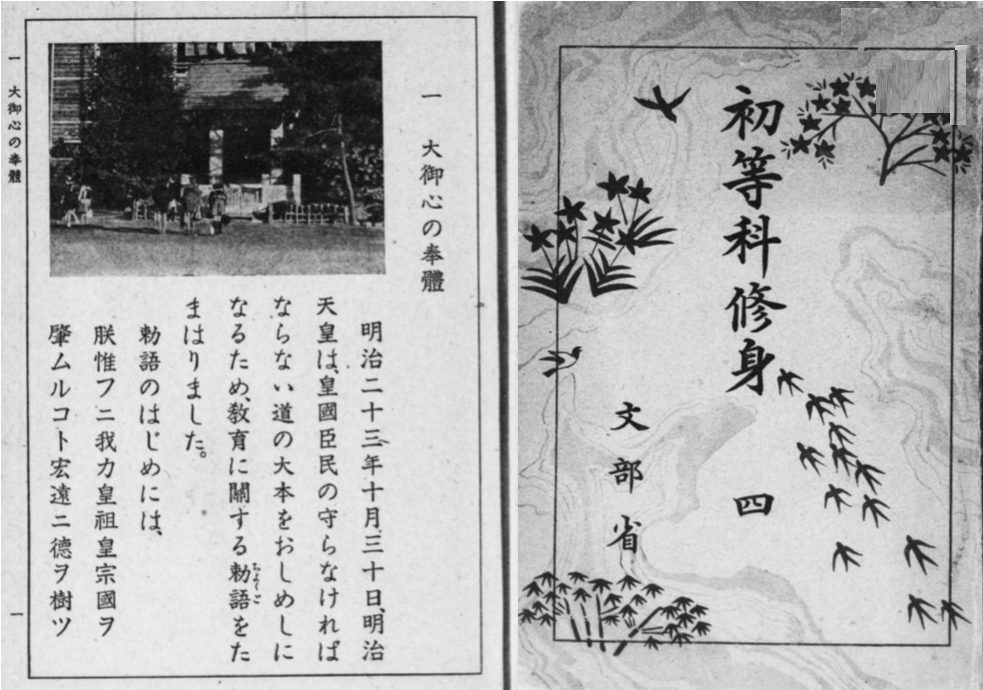 初等科修身 四
文部省
一 大御心の奉體
明治二十三年十月三十日、明治
天皇は、皇國臣民の守らなければ
ならない道の大本をおしめしに
なるため、敎育に關する勅語をた
ちよくご
まはりました。
勅語のはじめには、
朕惟フニ我カ皇祖皇宗國ヲ
肇ムルコト宏遠ニ德ヲ樹ツ
一 大御心の奉體
一